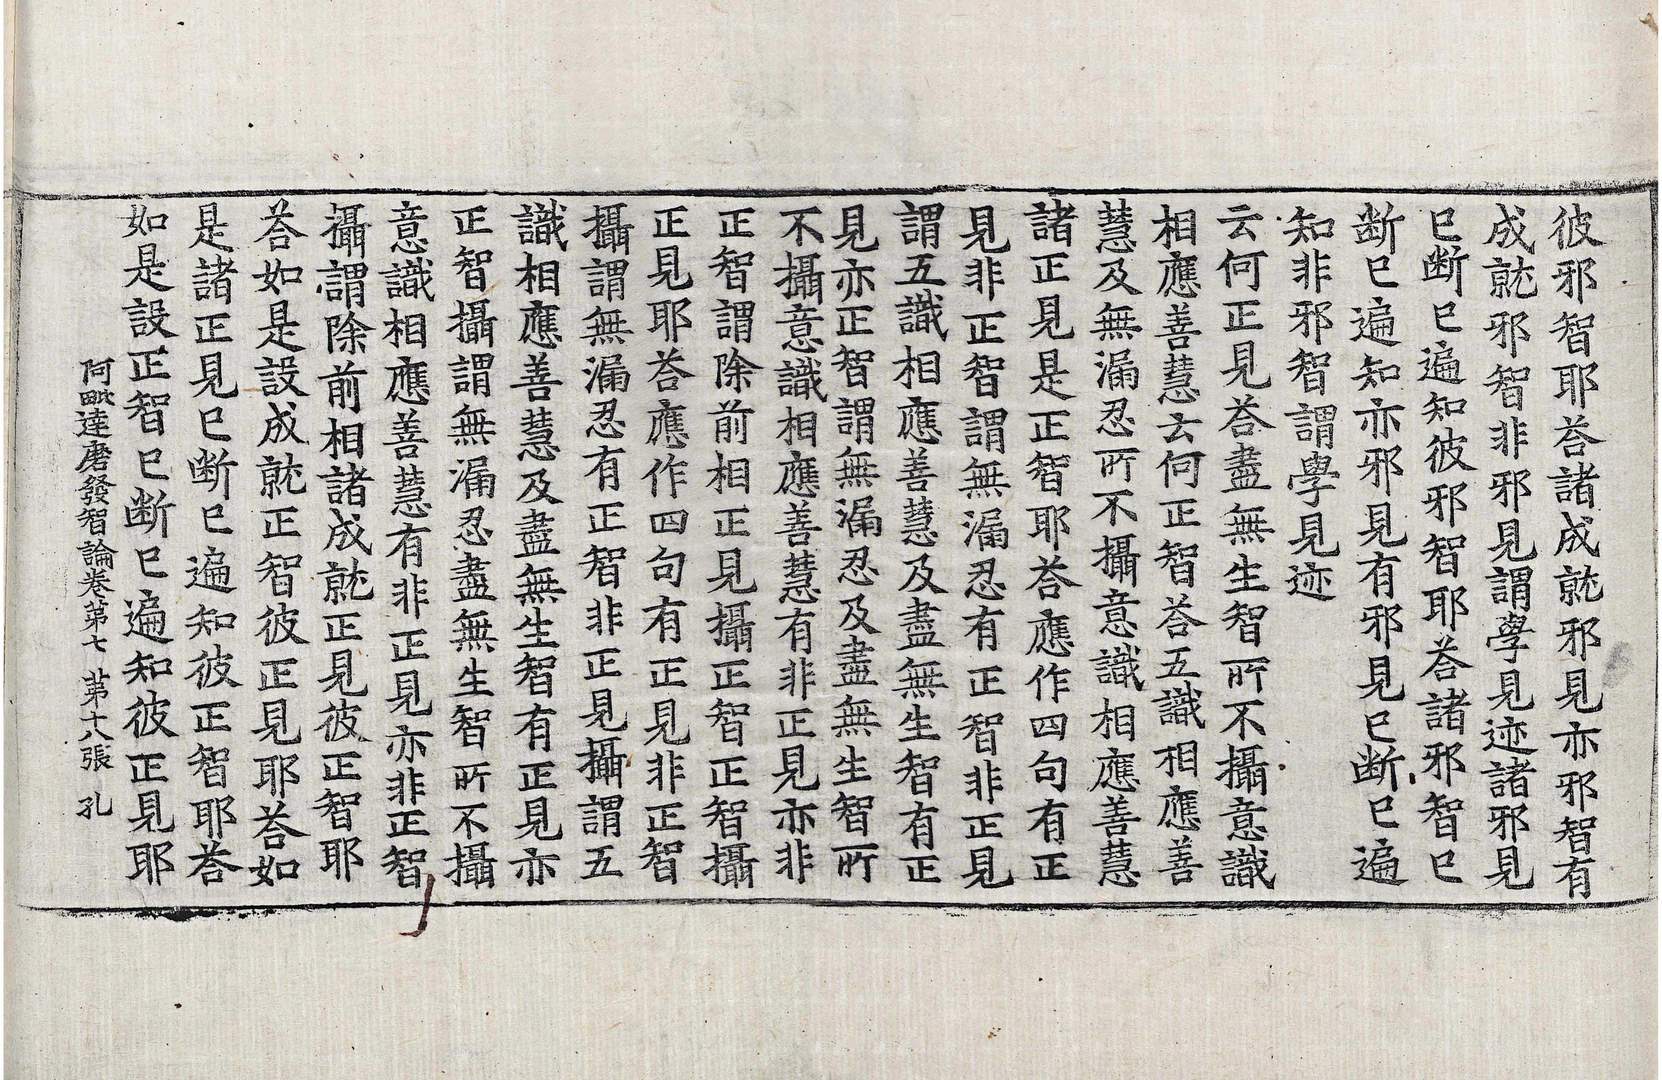 彼邪智耶荅諸成就邪見亦邪智有
成就邪智非邪見謂學見迹諸邪見
已断已遍知彼邪智耶荅諸邪智已
断已遍知亦邪見有邪見已断已遍
知非邪智謂學見迹
云何正見荅盡無生智所不攝意識
相應善慧云何正智荅五識相應善
慧及無漏忍所不攝意識相應善慧
諸正見是正智耶荅應作四句有正
見非正智謂無漏忍有正智非正見
謂五識相應善慧及盡無生智有正
見亦正智謂無漏忍及盡無生智所
不攝意識相應善慧有非正見亦非
正智謂除前相正見攝正智正智攝
正見耶荅應作四句有正見非正智
攝謂無漏忍有正智非正見攝謂五
識相應善慧及盡無生智有正見亦
正智攝謂無漏忍盡無生智所不攝
意識相應善慧有非正見亦非正智
攝謂除前相諸成就正見彼正智耶
荅如是設成就正智彼正見耶荅如
是諸正見已断已遍知彼正智耶荅
如是設正智已断已遍知彼正見耶
阿毗達磨發智論卷第七 第十八張 孔